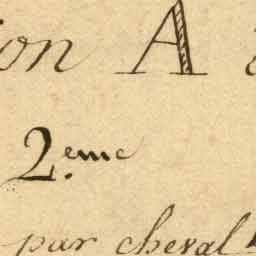 ion A
2.eme
par cheval